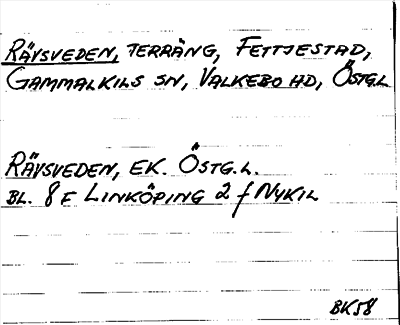 RÄVSVEDEN, TERRÄNG, FETTJESTAD,
GAMMALKILS SN, VALKEBO HD, ÖSTG.L
RÄVSVEDEN, EK. ÖSTG.L.
BL. 8 F LINKÖPING 2 f NYKIL
BK58